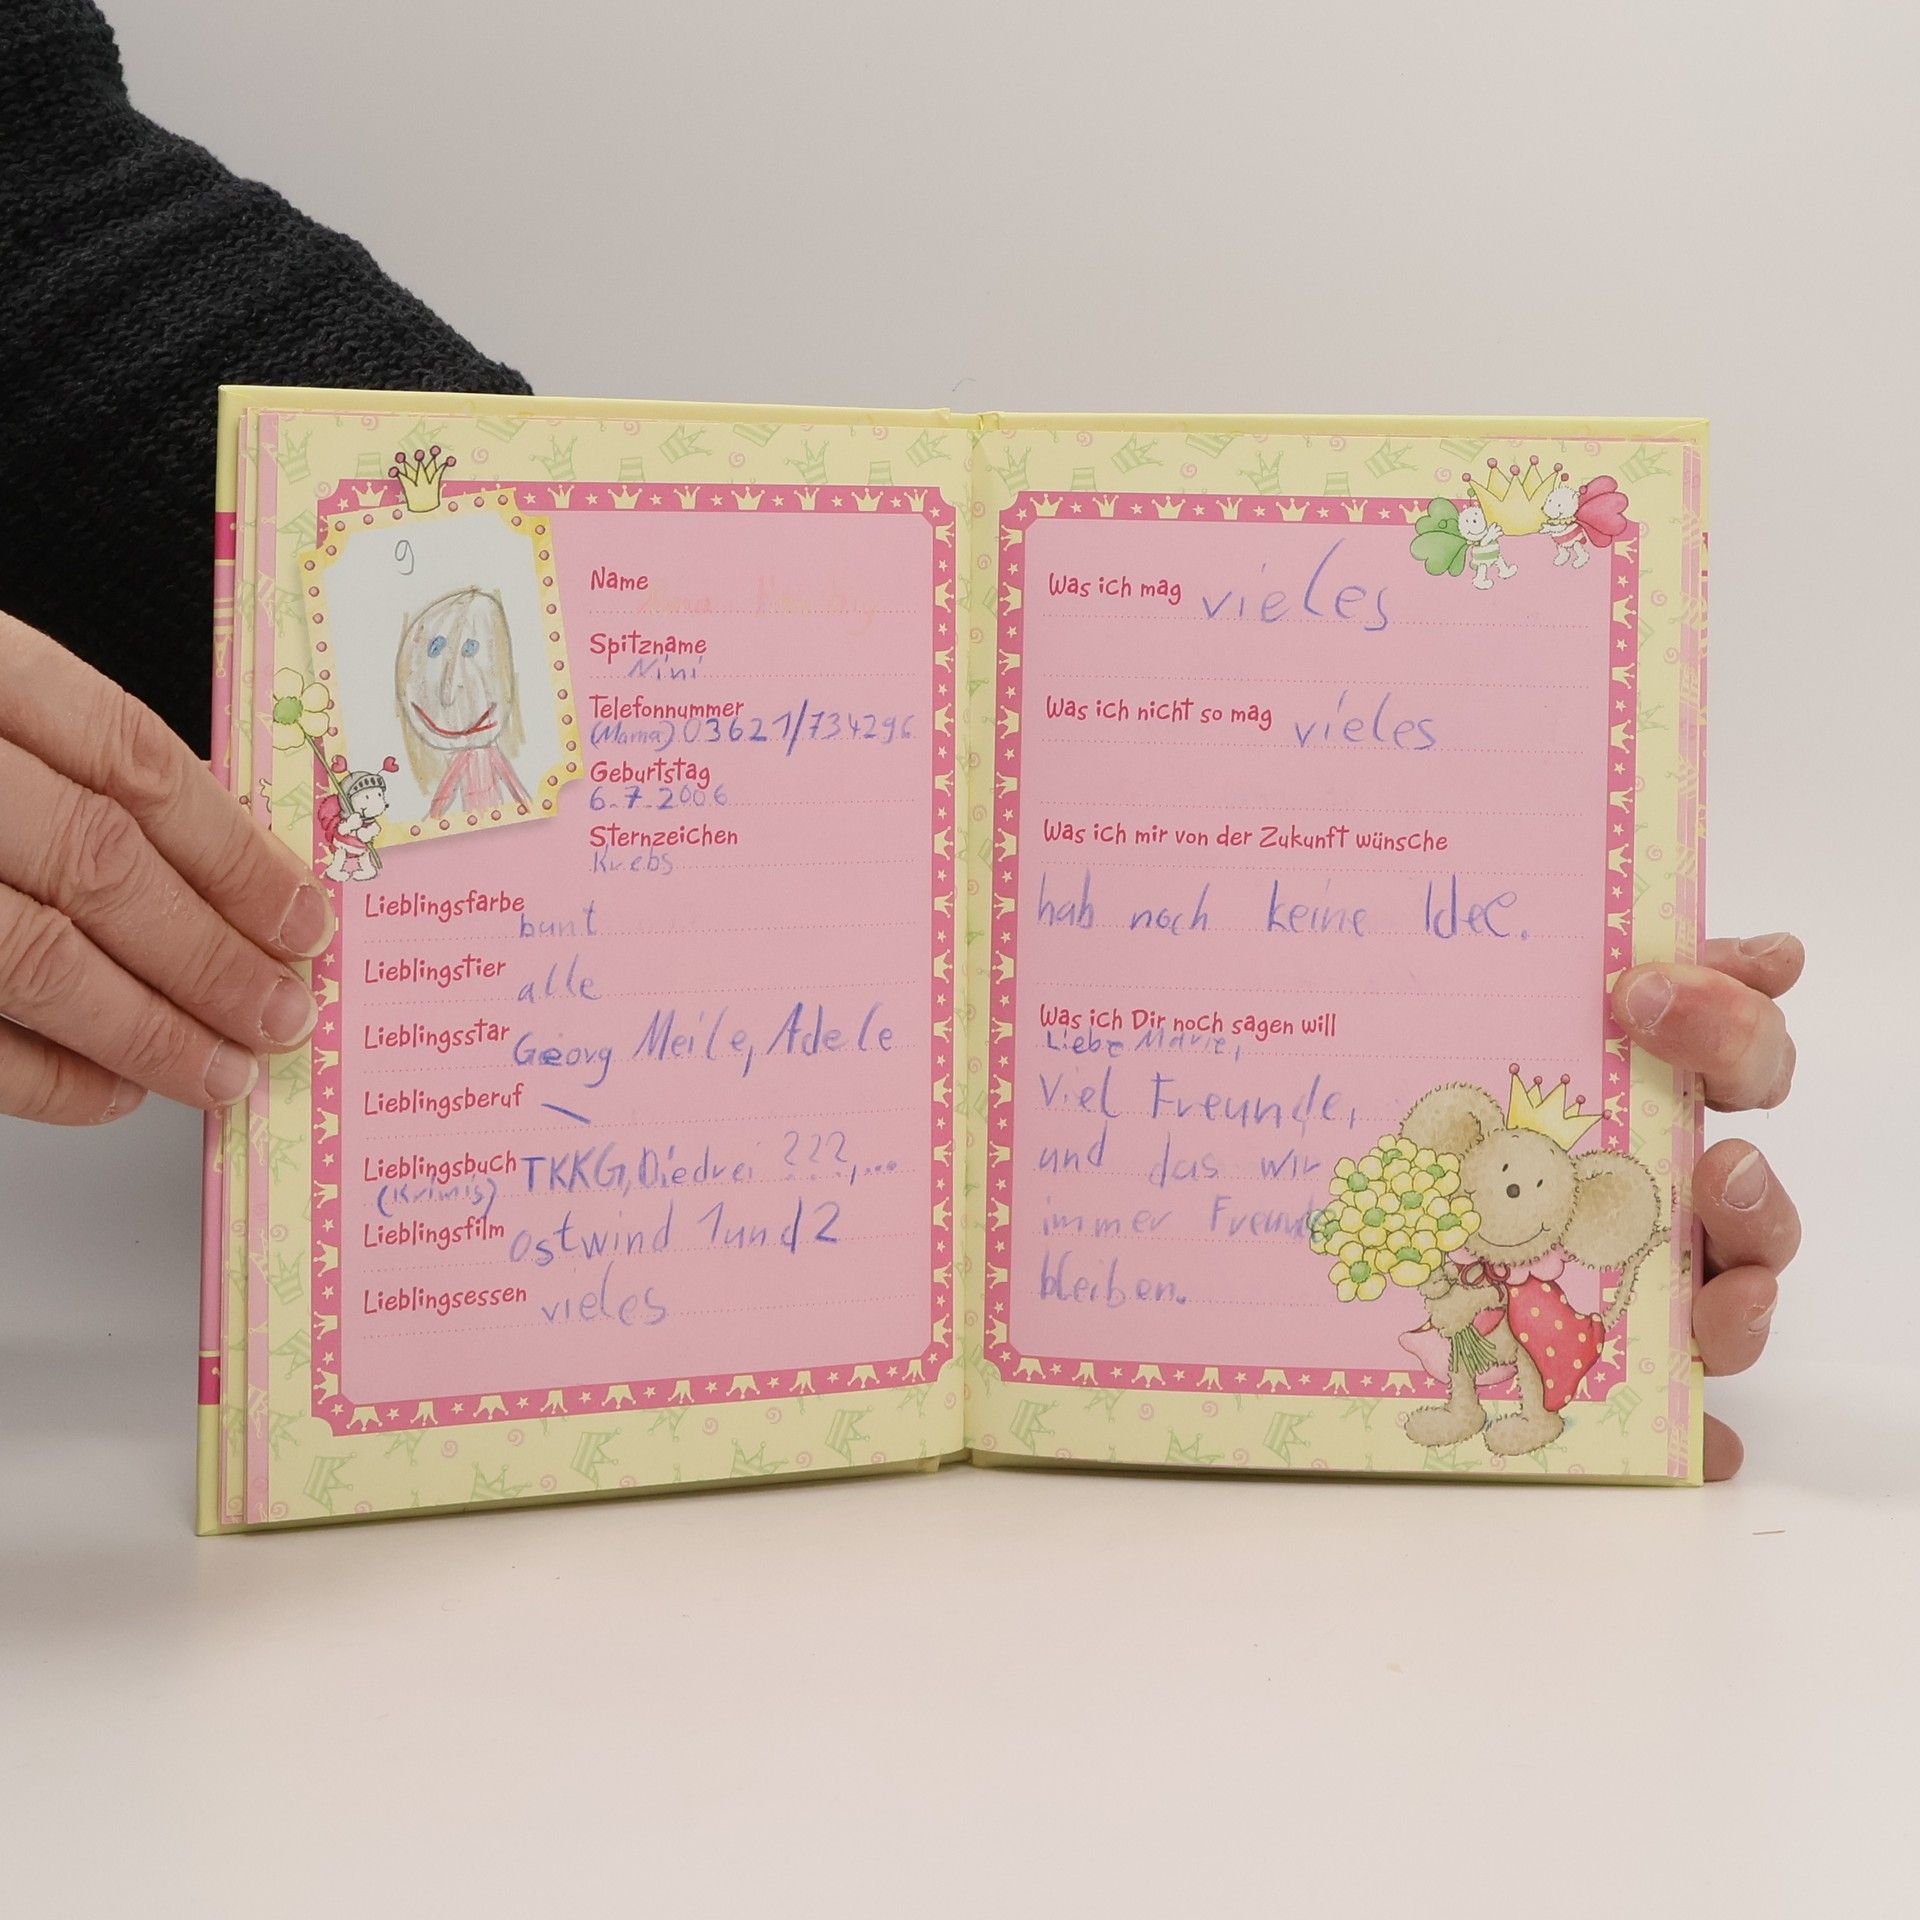 9
Name
Spitzname
Nini
Telefonnummer
(Mama) 03621/734296
Geburtstag
6.7.2006
Sternzeichen
Krebs
Lieblingsfarbe bunt
Lieblingstier alle
Lieblingsstar Georg Meile, Adele
Lieblingsberuf \
Lieblingsbuch TKKG, Diedrei ???, ...
(Krimis)
Lieblingsfilm ostwind 1und2
Lieblingsessen vieles
Was ich mag vieles
Was ich nicht so mag vieles
Was ich mir von der Zukunft wünsche
hab noch keine Idee.
Was ich Dir noch sagen will
Liebe Marie,
Viel Freunde,
und das wir
immer Freunde
bleiben.